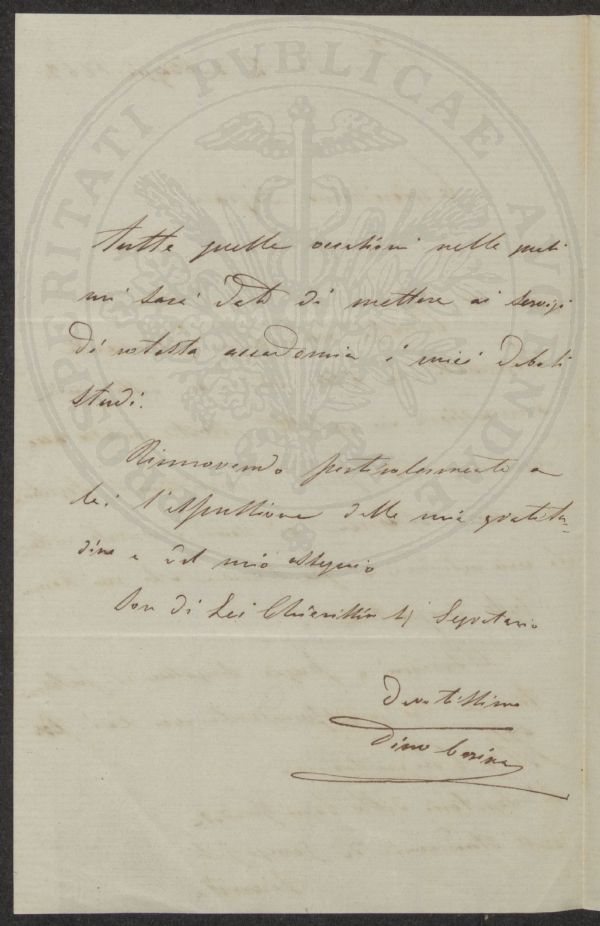 PROSPERITATI PVBLICAE AVGENDAE
tutte quelle occasioni nelle quali
mi sarà dato di mettere ai servigi
di cotesta accademia i miei deboli
studi.
Rinnovando particolarmente a
lei l'espressione della mia gratitu=
dine e del mio ossequio
Son di Lei Chiarissimo Sig Segretario
devotissimo
Dino